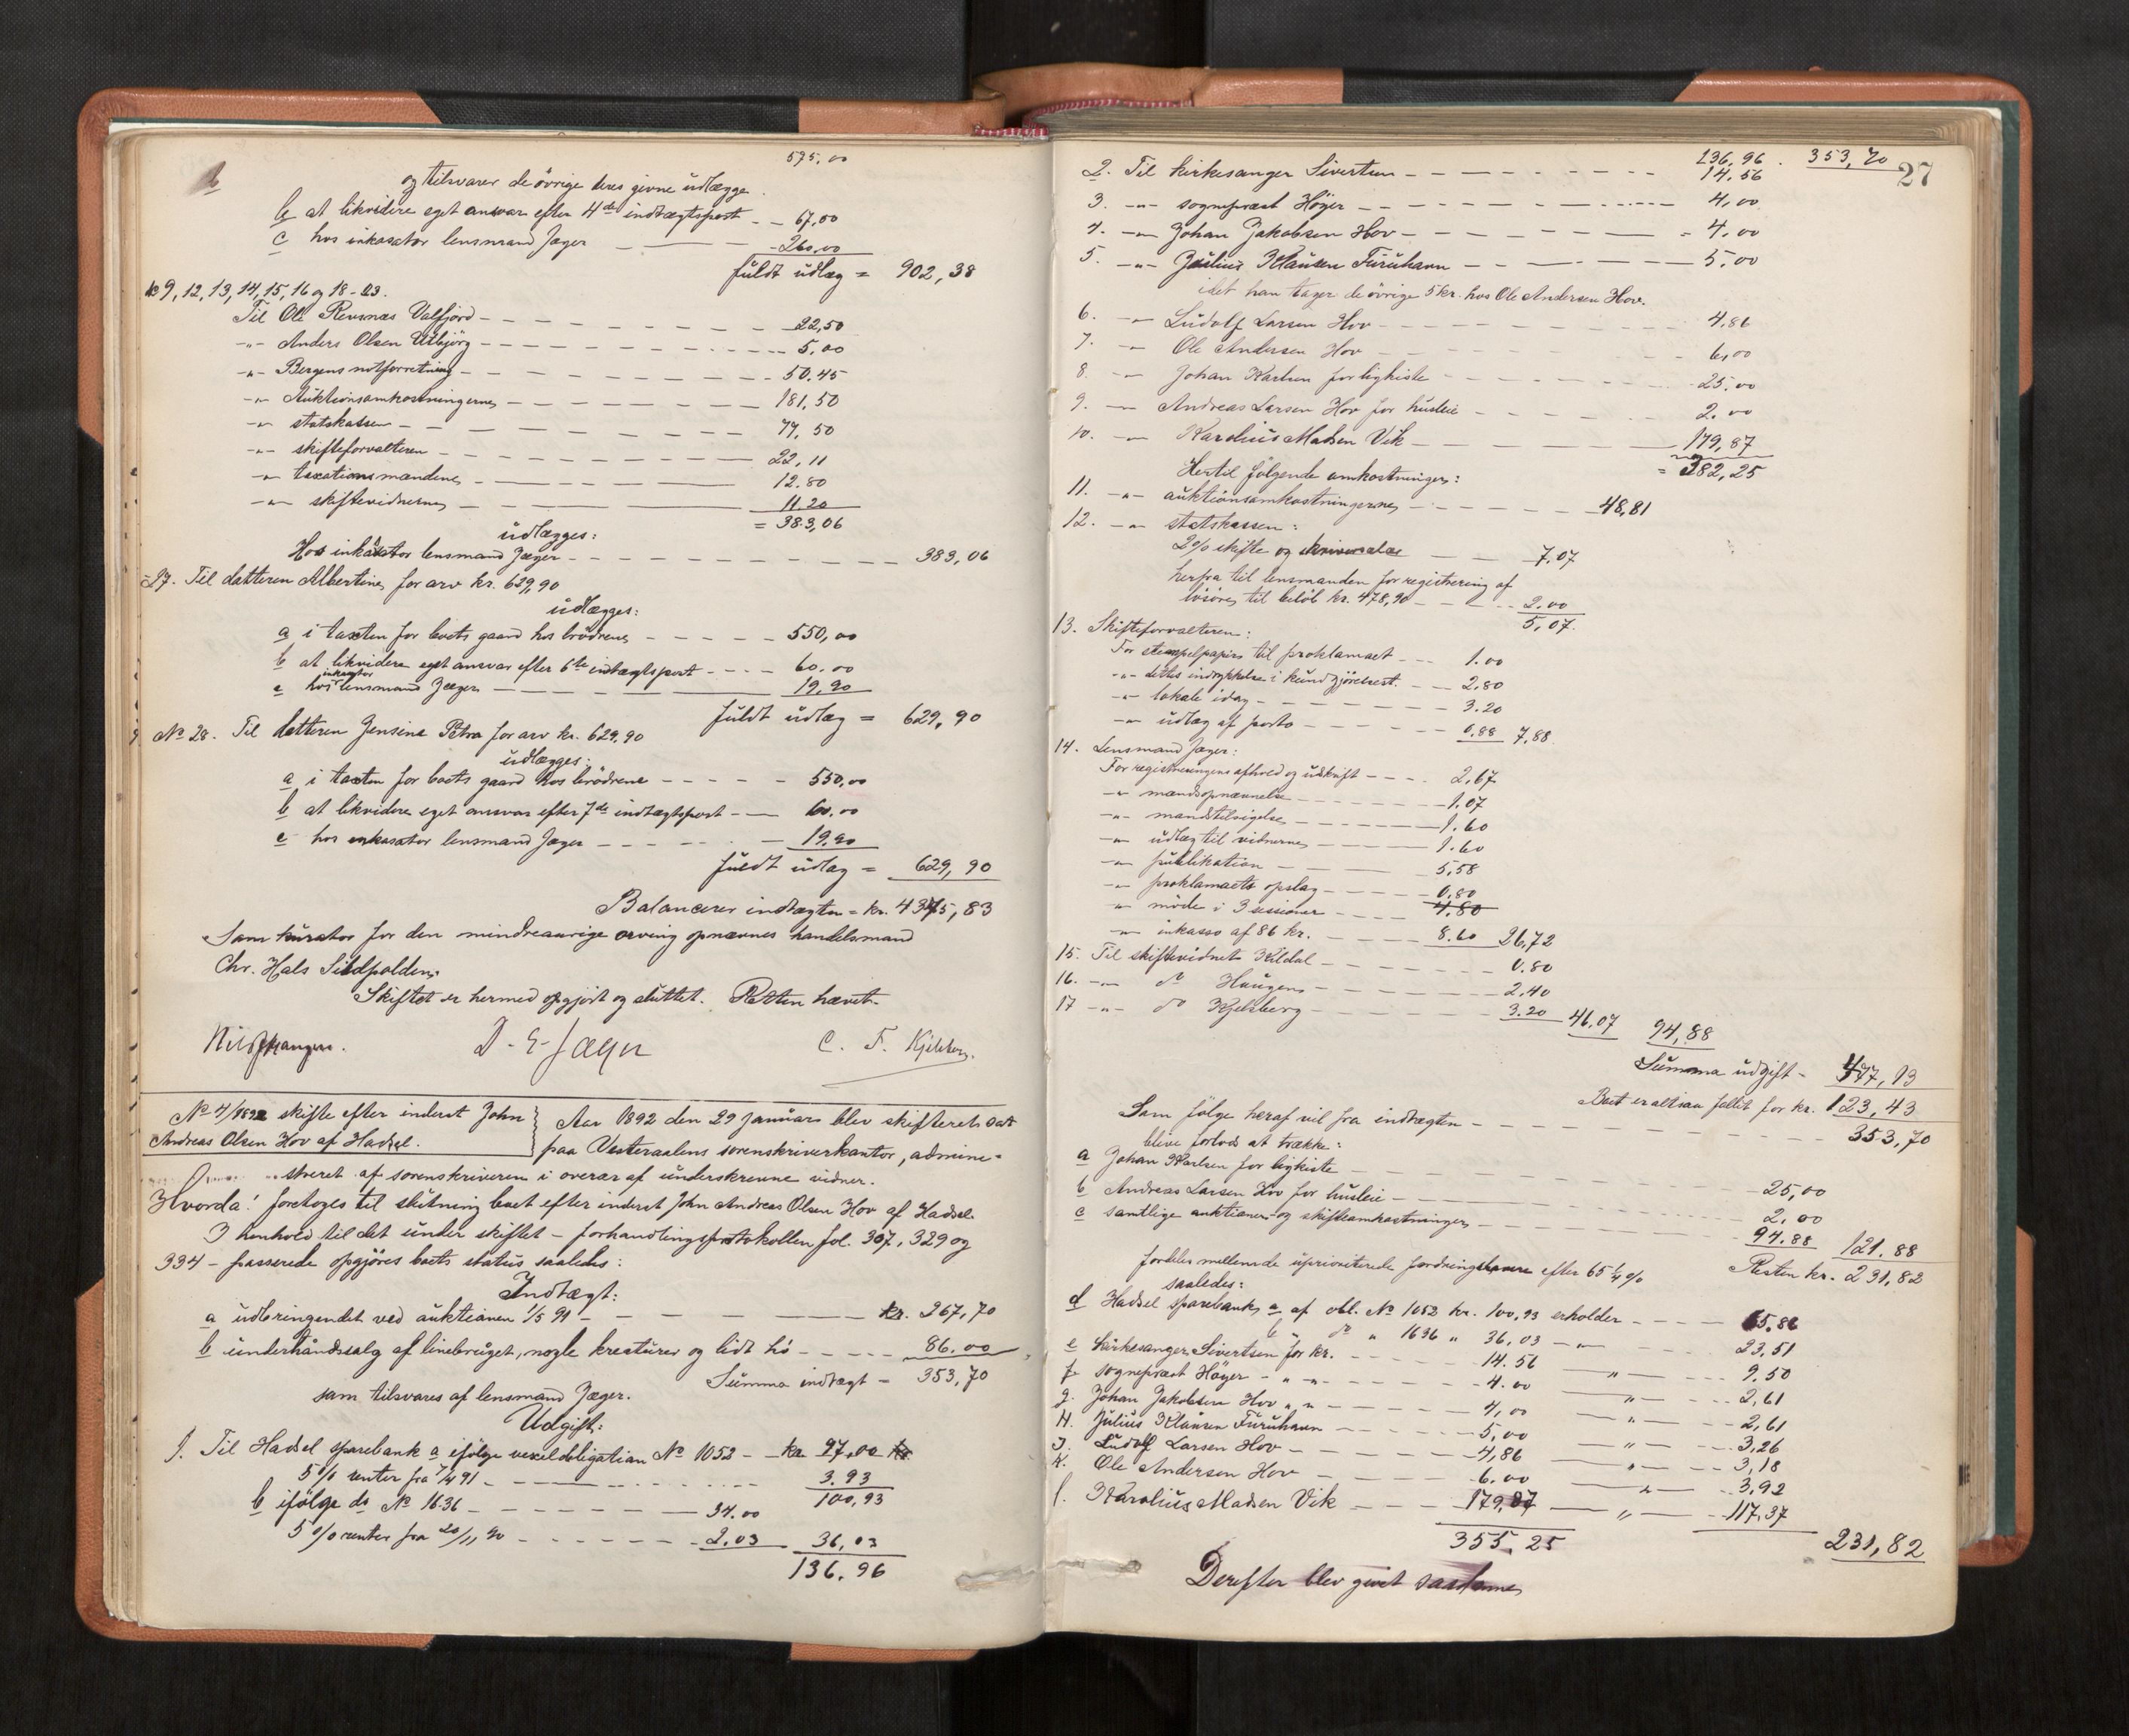 595,00
og tilsvarer de övrige deres givne udlægge.
b at likvidere eget ansvar efter 4de indtægtspost - - 67,00
c hos inkasator lensmand Jæger - 260,00
fuldt udlæg = 902,38
9, 12, 13, 14, 15, 16 og 18-23.
Til Ole Revsnæs Valfjord - 22,50
-"- Anders Olsen Utbjörg - 5,00
-"- Bergens notforretning - 50.45
-"- Auktionsomkostningerne - 181,50
-"- statskassen - 77,50
-"- skifteforvalteren - 22,11
-"- taxationsmændene - 12.80
-"- skiftevidnerne - 11.20
= 383,06
udlægges:
Hos inkasator lensmand Jæger - 383,06
27. Til datteren Albertine for arv kr. 629,90
udlægges:
a i taxten for boets gaard hos brödrene - 550,00
b at likvidere eget ansvar efter 6te indtægtspost - 60.00
c hos inkasator lensmand Jæger - 19,90
fuldt udlæg = 629,90
No 28. Til datteren Jensine Petra for arv kr. 629,90
udlægges:
a i taxten for boets gaard hos brödrene - 550,00
b at likvidere eget ansvar efter 7de indtægtspost - 60,00
c hos inkasator lensmand Jæger - 19,90
fuldt udlæg = 629,90
Balancerer indtægten = kr. 4375,83
Som kurator for den mindreaarige arving opnævnes handelsmand
Chr. Hals Sildpolden.
Skiftet er hermed opgjort og sluttet. Retten hævet.
D. E. Jæger C. F. Kjelsberg.
No 4/1892 skifte efter inderst John
Andreas Olsen Hov af Hadsel.
Aar 1892 den 29 januar blev skifteret sat
paa Vesteraalens sorenskriverkontor, admini-
streret af sorenskriveren i overær af underskrevne vidner.
Hvorda! foretoges til slutning boet efter inderst John Andreas Olsen Hov af Hadsel.
I henhold til det under skiftet - forhandlingsprotokollen fol. 307, 329 og
334 - passerede opgjöres boets status saaledes:
Indtægt:
a udbringendet ved auktionen 1/5 91 - kr. 267,70
b underhåndssalg af linebruget, nogle kreaturer og lidt hö - 86.00
Summa indtægt = 353,70
som tilsvares af lensmand Jæger.
Udgift:
1. Til Hadsel sparebank a ifölge vexelobligation No 1052 - kr 97,00
5% renter fra 7/4 91 - 3.93
100,93
b ifölge do No 1636 - 34.00
5% renter fra 20/11 90 - 2.03 36,03
136.96
27
136,96. 353,70
2. Til kirkesanger Sivertsen - 14.56
3. -"- sogneprest Höyer - 4,00
4. -"- Johan Jakobsen Hov - 4.00
5. -"- Julius Klausen Furuhavn - 5.00
idet han tager de övrige 5 kr. hos Ole Andersen Hov.
6. -"- Ludolf Larsen Hov - 4.86
7. -"- Ole Andersen Hov - 6,00
8. -"- Johan Karlsen for ligkiste - 25.00
9. -"- Andreas Larsen Hov for husleie - 2.00
10. -"- Karolius Madsen Vik - 179,87
= 382,25
Hertil fölgende omkostninger:
11. -"- auktionsomkostningerne - 48,81
12. -"- statskassen:
2% skifte og - 7.07
herfra til lensmanden for registrering af
lösöre til belöb kr. 478,90 - 2.00
5,07.
13. Skifteforvalteren:
For stempelpapir til proklamaet - 1.00
-"- dettes indrykkelse i kundgjörelsest. - 2,80
-"- lokale idag - 3.20
-"- udlæg af porto - 0,88 7,88
14. Lensmand Jæger:
For registreringens afhold og udskrift - 2,67
-"- mandsopnævnelse - 1.07
-"- mandstilsigelse - 1.60
-"- udlæg til vidnerne - 1.60
-"- publikation - 5,58
-"- proklamaets opslag - 0,80
-"- möde i 3 sessioner - 4.80
-"- inkasso af 86 kr. - 8.60 26,72
15. Til skiftevidnet Kildal - 0.80
16. -"- do Haugen - 2.40
17 -"- do Kjelsberg - 3.20 46,07 94,88
Summa udgift - 477,13
Boet er altsaa fallit for kr. 123,43
353,70
Som fölge heraf vil fra indtægten
blive forlods at trække:
a Johan Karlsen for ligkiste - 25,00
b Andreas Larsen Hov for husleie - 2.00
c samtlige auktions- og skifteomkostninger - 94.88 121.88
Resten kr. 231,82
fordeles mellem de uprioriterede fordringshavere efter 65 1/4 %
saaledes:
d Hadsel sparebank, a af obl. No 1052 kr. 100,93 erholder - 65.86
b do " 1636 " 36,03 - " - 23,51
e Kirkesanger Sivertsen for kr. - 14.56 " 9.50
f sogneprest Höyer - " - 4.00 " 2,61
g. Johan Jakobsen Hov " - 4,00 " 2,61
H. Julius Klausen Furuhavn - 5,00 " 3,26
I. Ludolf Larsen Hov - 4,86 " 3,18
K. Ole Andersen Hov - 6.00 " 3,92
l. Karolius Madsen Vik - 179,87 " 117,37
355,25 231,82
Derefter blev givet saadanne